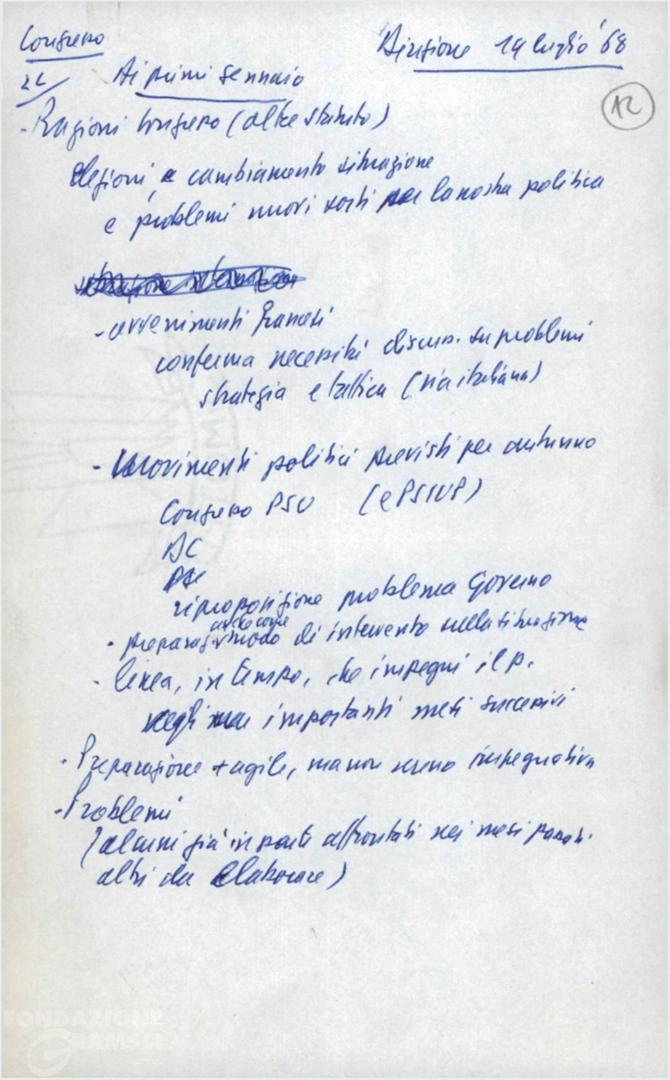 Congresso
Direzione 19 luglio '68
12
Ai primi gennaio
- Ragioni Congresso (oltre statuto)
elezioni, e cambiamento situazione
e problemi nuovi sorti per la nostra politica
- avvenimenti francesi
conferma necessità discuss. su problemi
strategia e tattica (via italiana)
- Movimenti politici previsti per autunno
Congresso PSU (e PSIUP)
DC
riproposizione problema Governo
anche come
- preparaz. modo di intervento nella situazione
- linea, in tempo, che impegni il p.
negli importanti mesi successivi
- Preparazione + agile, ma non meno impegnativa
- Problemi
(alcuni già in parte affrontati nei mesi passati.
altri da elaborare)
FONDAZIONE
GRAMSCI